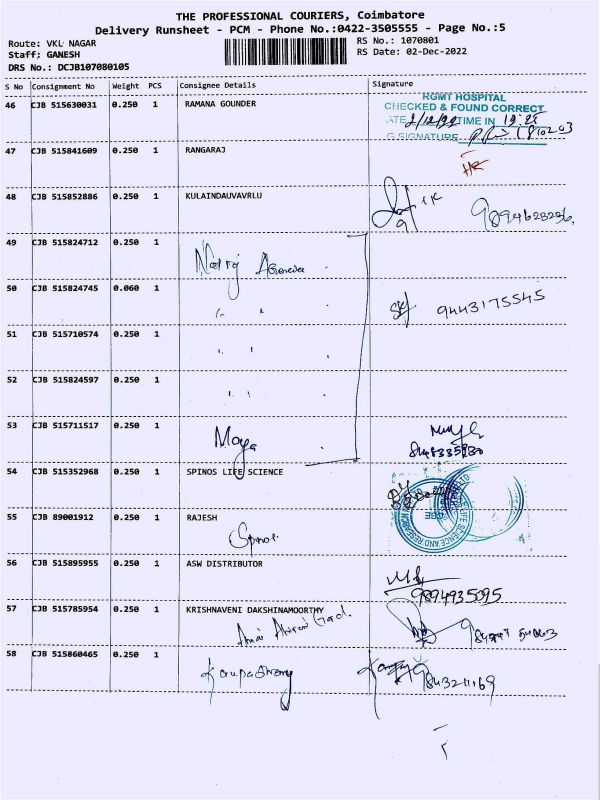 THE PROFESSIONAL COURIERS, Coimbatore
Delivery Runsheet - PCM - Phone No.:0422-3505555 - Page No.:5
Route: VKL NAGAR
RS No.: 1070801
Staff: GANESH
RS Date: 02-Dec-2022
DRS No.: DCJB107080105
S No Consignment No Weight PCS Consignee Details Signature
46 CJB 515630031 0.250 1 RAMANA GOUNDER
RGMT HOSPITAL
CHECKED & FOUND CORRECT
TIME IN
G SIGNATURE
47 CJB 515841609 0.250 1 RANGARAJ
HR
48 CJB 515852886 0.250 1 KULAINDAUVAVRLU
9894628286
49 CJB 515824712 0.250 1
50 CJB 515824745 0.060 1
9443175545
51 CJB 515710574 0.250 1
52 CJB 515824597 0.250 1
53 CJB 515711517 0.250 1 Maya
54 CJB 515352968 0.250 1 SPINOS LIFE SCIENCE
LIFE SCIENCE AND RESEARCH
55 CJB 89001912 0.250 1 RAJESH
Spinos
56 CJB 515895955 0.250 1 ASW DISTRIBUTOR
9894935095
57 CJB 515785954 0.250 1 KRISHNAVENI DAKSHINAMOORTHY
58 CJB 515860465 0.250 1